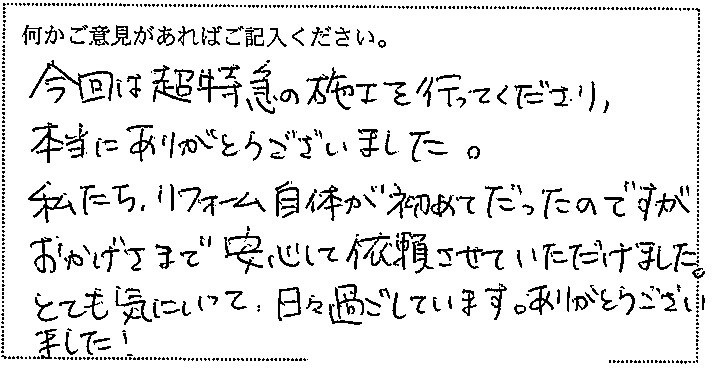 何かご意見があればご記入ください。
今回は超特急の施工を行ってくださり,
本当にありがとうございました。
私たち,リフォーム自体が初めてだったのですが
おかげさまで安心して依頼させていただけました。
とても気にいって,日々過ごしています。ありがとうござい
ました!